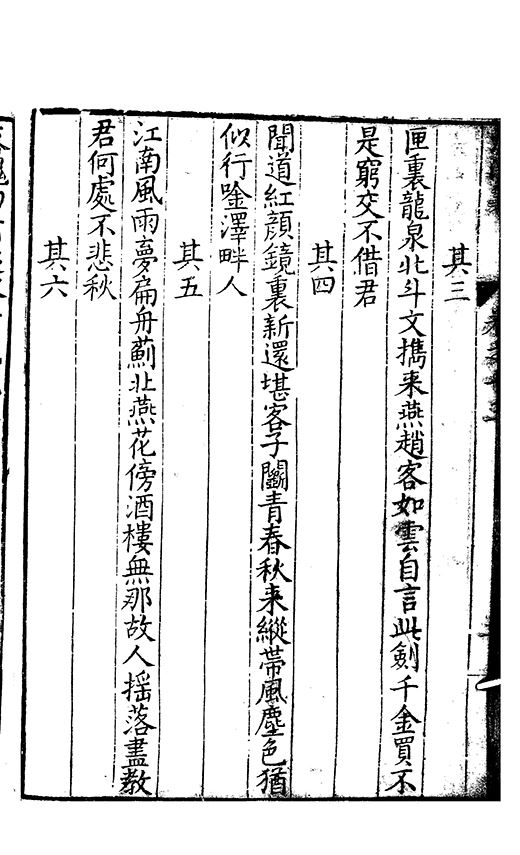 其三
匣裏龍泉北斗文擕來燕趙客如雲自言此劍千金買不
是窮交不借君
其四
聞道紅顏鏡裏新還堪客子鬬青春秋来縱帶風塵色猶
似行唫澤畔人
其五
江南風雨夢扁舟薊北燕花傍酒樓無那故人揺落盡教
君何處不悲秋
其六